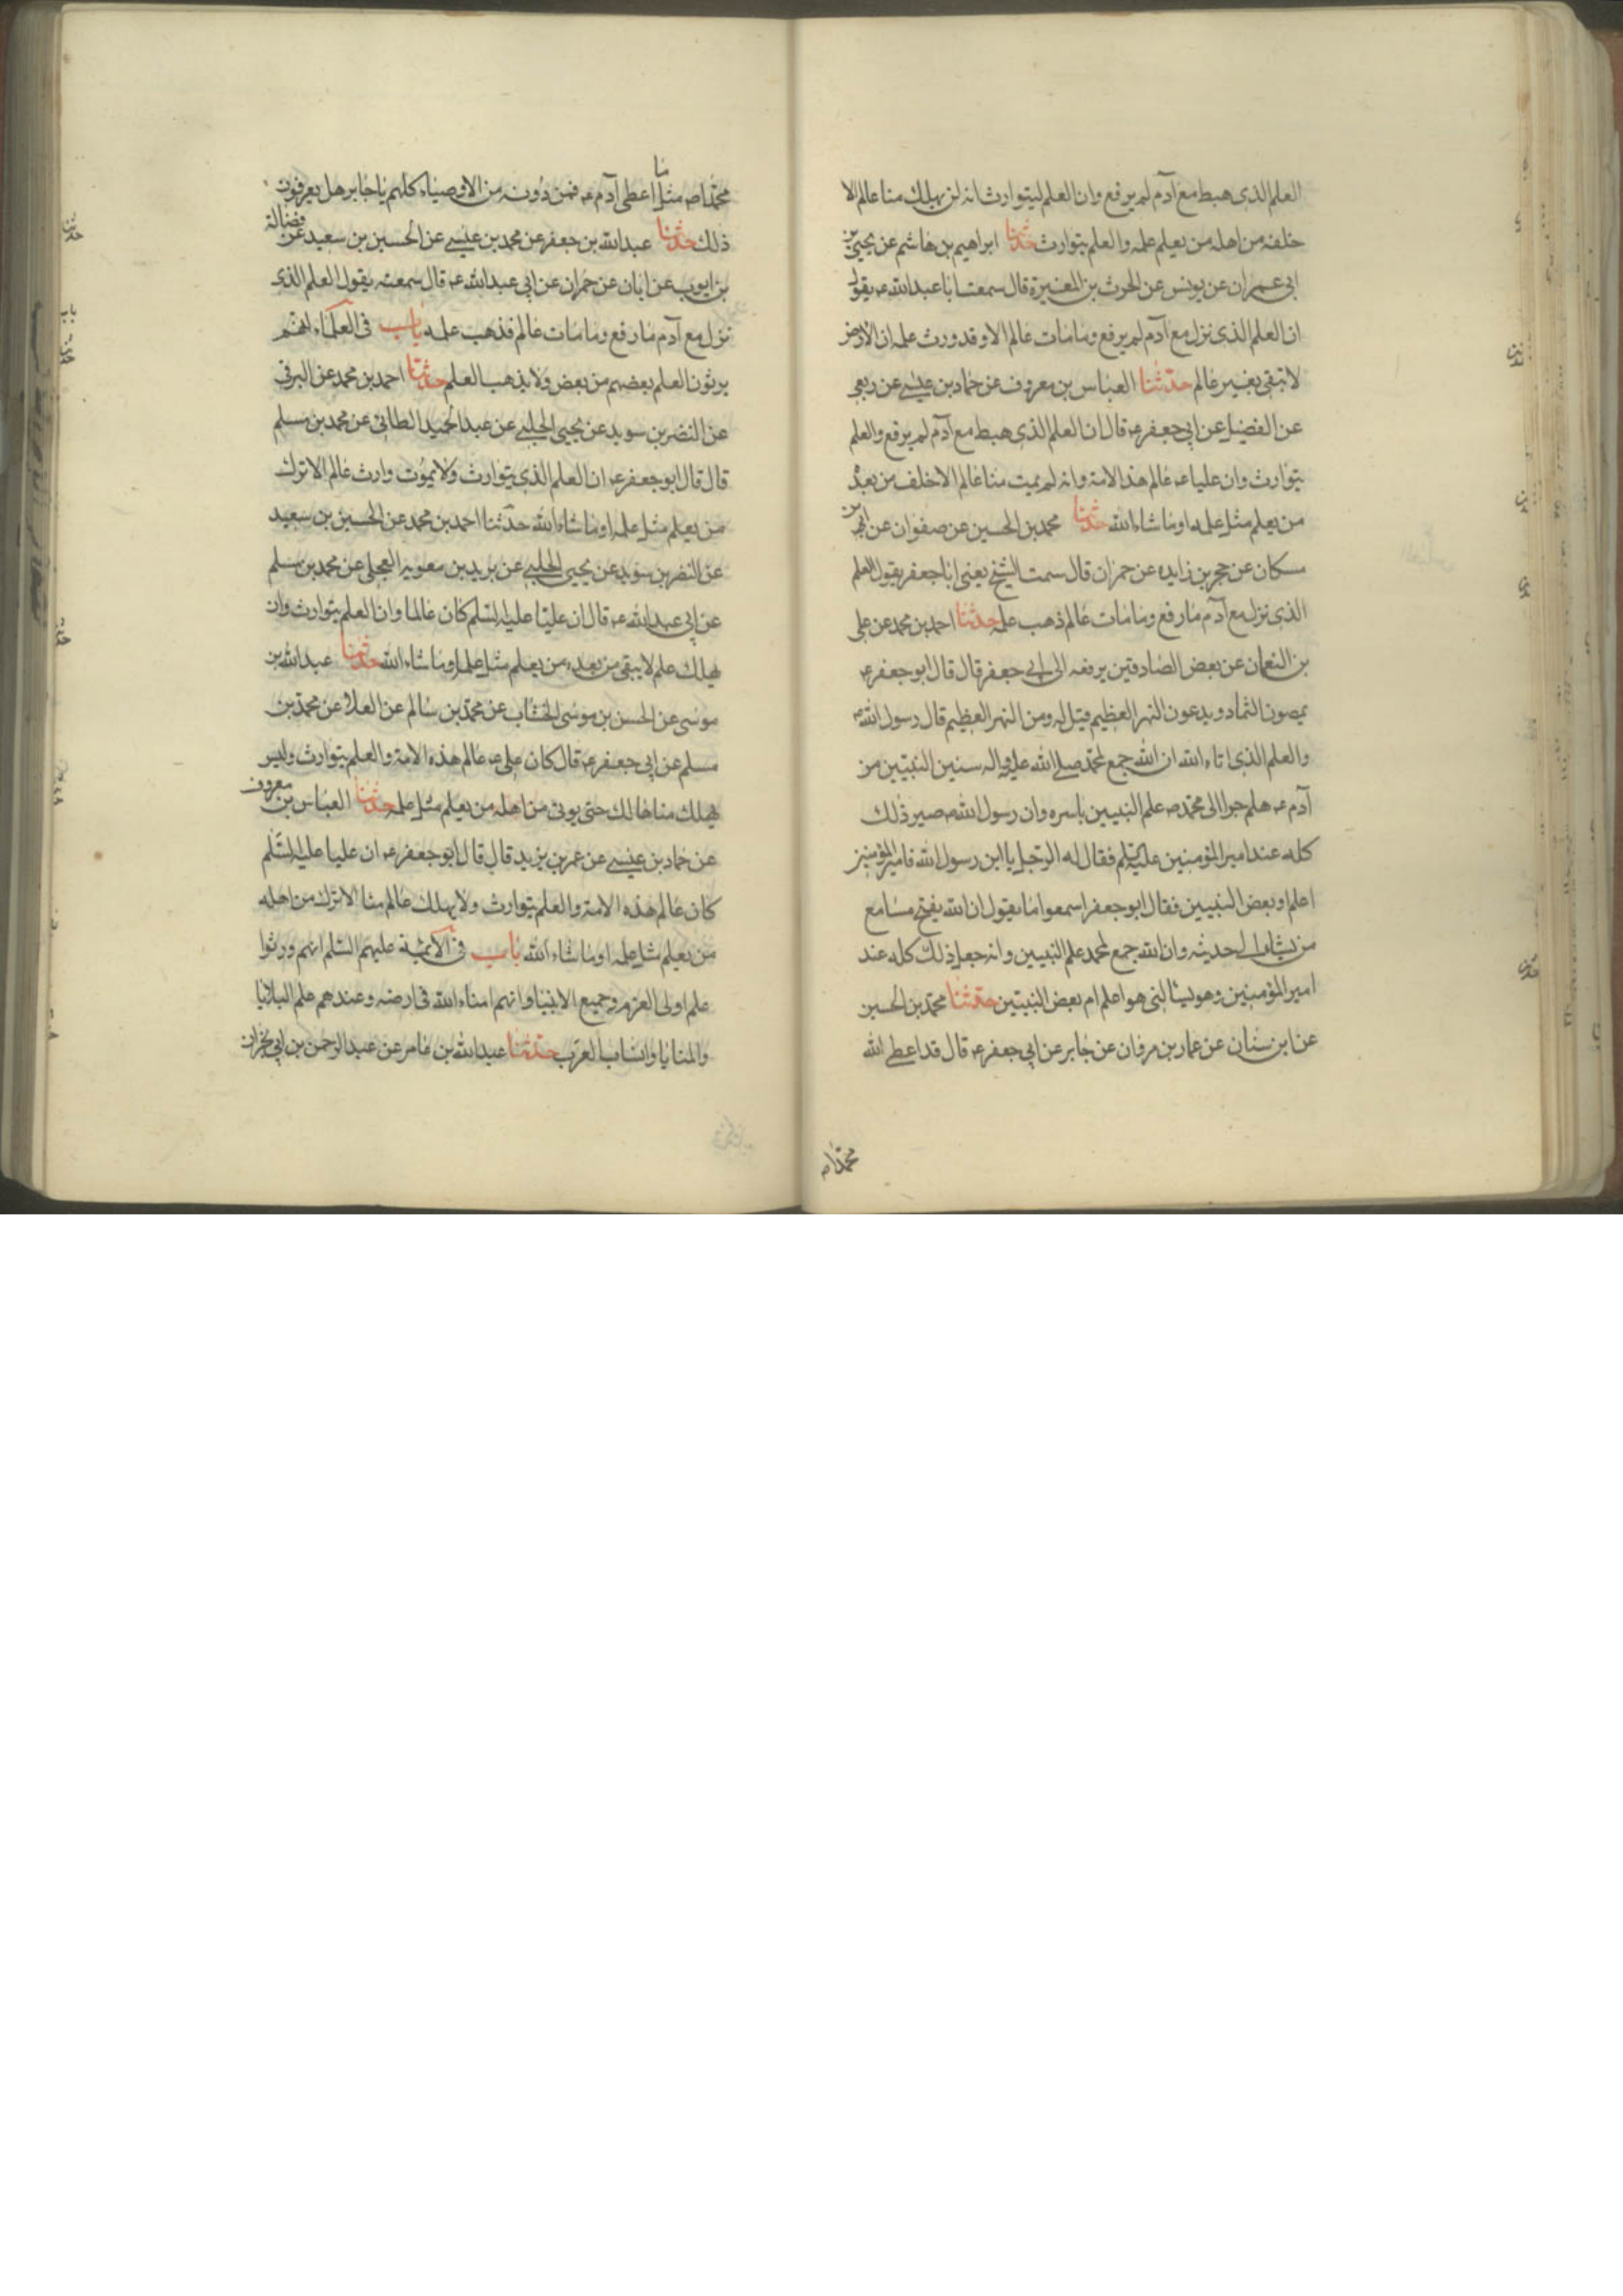 العلم الذى هبط مع آدم لم يرفع وان العلم ليتوارث انه لن يهلك منا عالم الا
خلفه من اهله من يعلم علمه والعلم يتوارث حدثنا ابراهيم بن هاشم عن يحيى بن
ابى عمران عن يونس عن الحرث بن المغيرة قال سمعت ابا عبدالله ع يقول
ان العلم الذى نزل مع آدم لم يرفع وما مات عالم الا وقد ورث علمه ان الارض
لا تبقى بغير عالم حدثنا العباس بن معروف عن حماد بن عيسى عن ربعى
عن الفضيل عن ابى جعفر ع قال ان العلم الذى هبط مع آدم لم يرفع والعلم
يتوارث وان عليا ع عالم هذا الامة وانه لم يمت منا عالم الا خلف من بعده
من يعلم مثل علمه او ما شاء الله حدثنا محمد بن الحسين عن صفوان عن ابن
مسكان عن حجر بن زايده عن حمران قال سمت الشيخ يعنى ابا جعفر يقول العلم
الذى نزل مع آدم ما رفع وما مات عالم ذهب علمه حدثنا احمد بن محمد عن على
بن النعمان عن بعض الصادقين يرفعه الى ابى جعفر قال قال ابو جعفر ع
يمصون الثماد ويدعون النهر العظيم قيل له ومن النهر العظيم قال رسول الله ص
والعلم الذى اتاه الله ان الله جمع لمحمد صلى الله عليه واله سنين النبيين من
آدم ع هلم جرا الى محمد ص علم النبيين باسره وان رسول الله ص صير ذلك
كله عند امير المؤمنين عليه السلم فقال له الرجل يا ابن رسول الله فامير المؤمنين
اعلم او بعض النبيين فقال ابو جعفر اسمعوا ما يقول ان الله يفتح مسامع
من يشاء الى حديثه وان الله جمع لمحمد علم النبيين وانه جعل ذلك كله عند
امير المؤمنين وهو يسالنى هو اعلم ام بعض النبيين حدثنا محمد بن الحسين
عن ابن سنان عن عمار بن مرفان عن جابر عن ابى جعفر ع قال قد اعطى الله
محمدا ص
محمدا ص مثل ما اعطى آدم ع فمن دونه من الاوصياء كلهم يا جابر هل يعرفون
ذلك حدثنا عبدالله بن جعفر عن محمد بن عيسى عن الحسين بن سعيد عن فضالة
بن ايوب عن ابان عن حمران عن ابى عبدالله ع قال سمعته يقول العلم الذى
نزل مع آدم ما رفع وما مات عالم فذهب علمه باب فى العلماء انهم
يرثون العلم بعضهم من بعض ولا يذهب العلم حدثنا احمد بن محمد عن البرقى
عن النضر بن سويد عن يحيى الحلبى عن عبد الحميد الطائى عن محمد بن مسلم
قال قال ابو جعفر ع ان العلم الذى يتوارث ولا يموت وارث عالم الا ترك
من يعلم مثل علمه او ما شاء الله حدثنا احمد بن محمد عن الحسين بن سعيد
عن النضر بن سويد عن يحيى الحلبى عن بريد بن معوية العجلى عن محمد بن مسلم
عن ابى عبدالله ع قال ان عليا عليه السلم كان عالما وان العلم يتوارث وان
يهلك علم لا يبقى من بعده من يعلم مثل علمه او ما شاء الله حدثنا عبدالله بن
موسى عن الحسن بن موسى الخشاب عن محمد بن سالم عن العلا عن محمد بن
مسلم عن ابى جعفر ع قال كان على ع عالم هذه الامة والعلم يتوارث وليس
يهلك منا هالك حتى يوتى من اهله من يعلم مثل علمه حدثنا العباس بن معروف
عن حماد بن عيسى عن عمر بن يزيد قال قال ابو جعفر ع ان عليا عليه السلم
كان عالم هذه الامة والعلم يتوارث ولا يهلك عالم منا الا ترك من اهله
من يعلم مثل علمه او ما شاء الله باب فى الائمة عليهم السلم انهم ورثوا
علم اولى العزم وجميع الانبيا وانهم امناء الله فى ارضه وعندهم علم البلايا
والمنايا وانساب العرب حدثنا عبدالله بن عامر عن عبدالرحمن بن ابى نجران